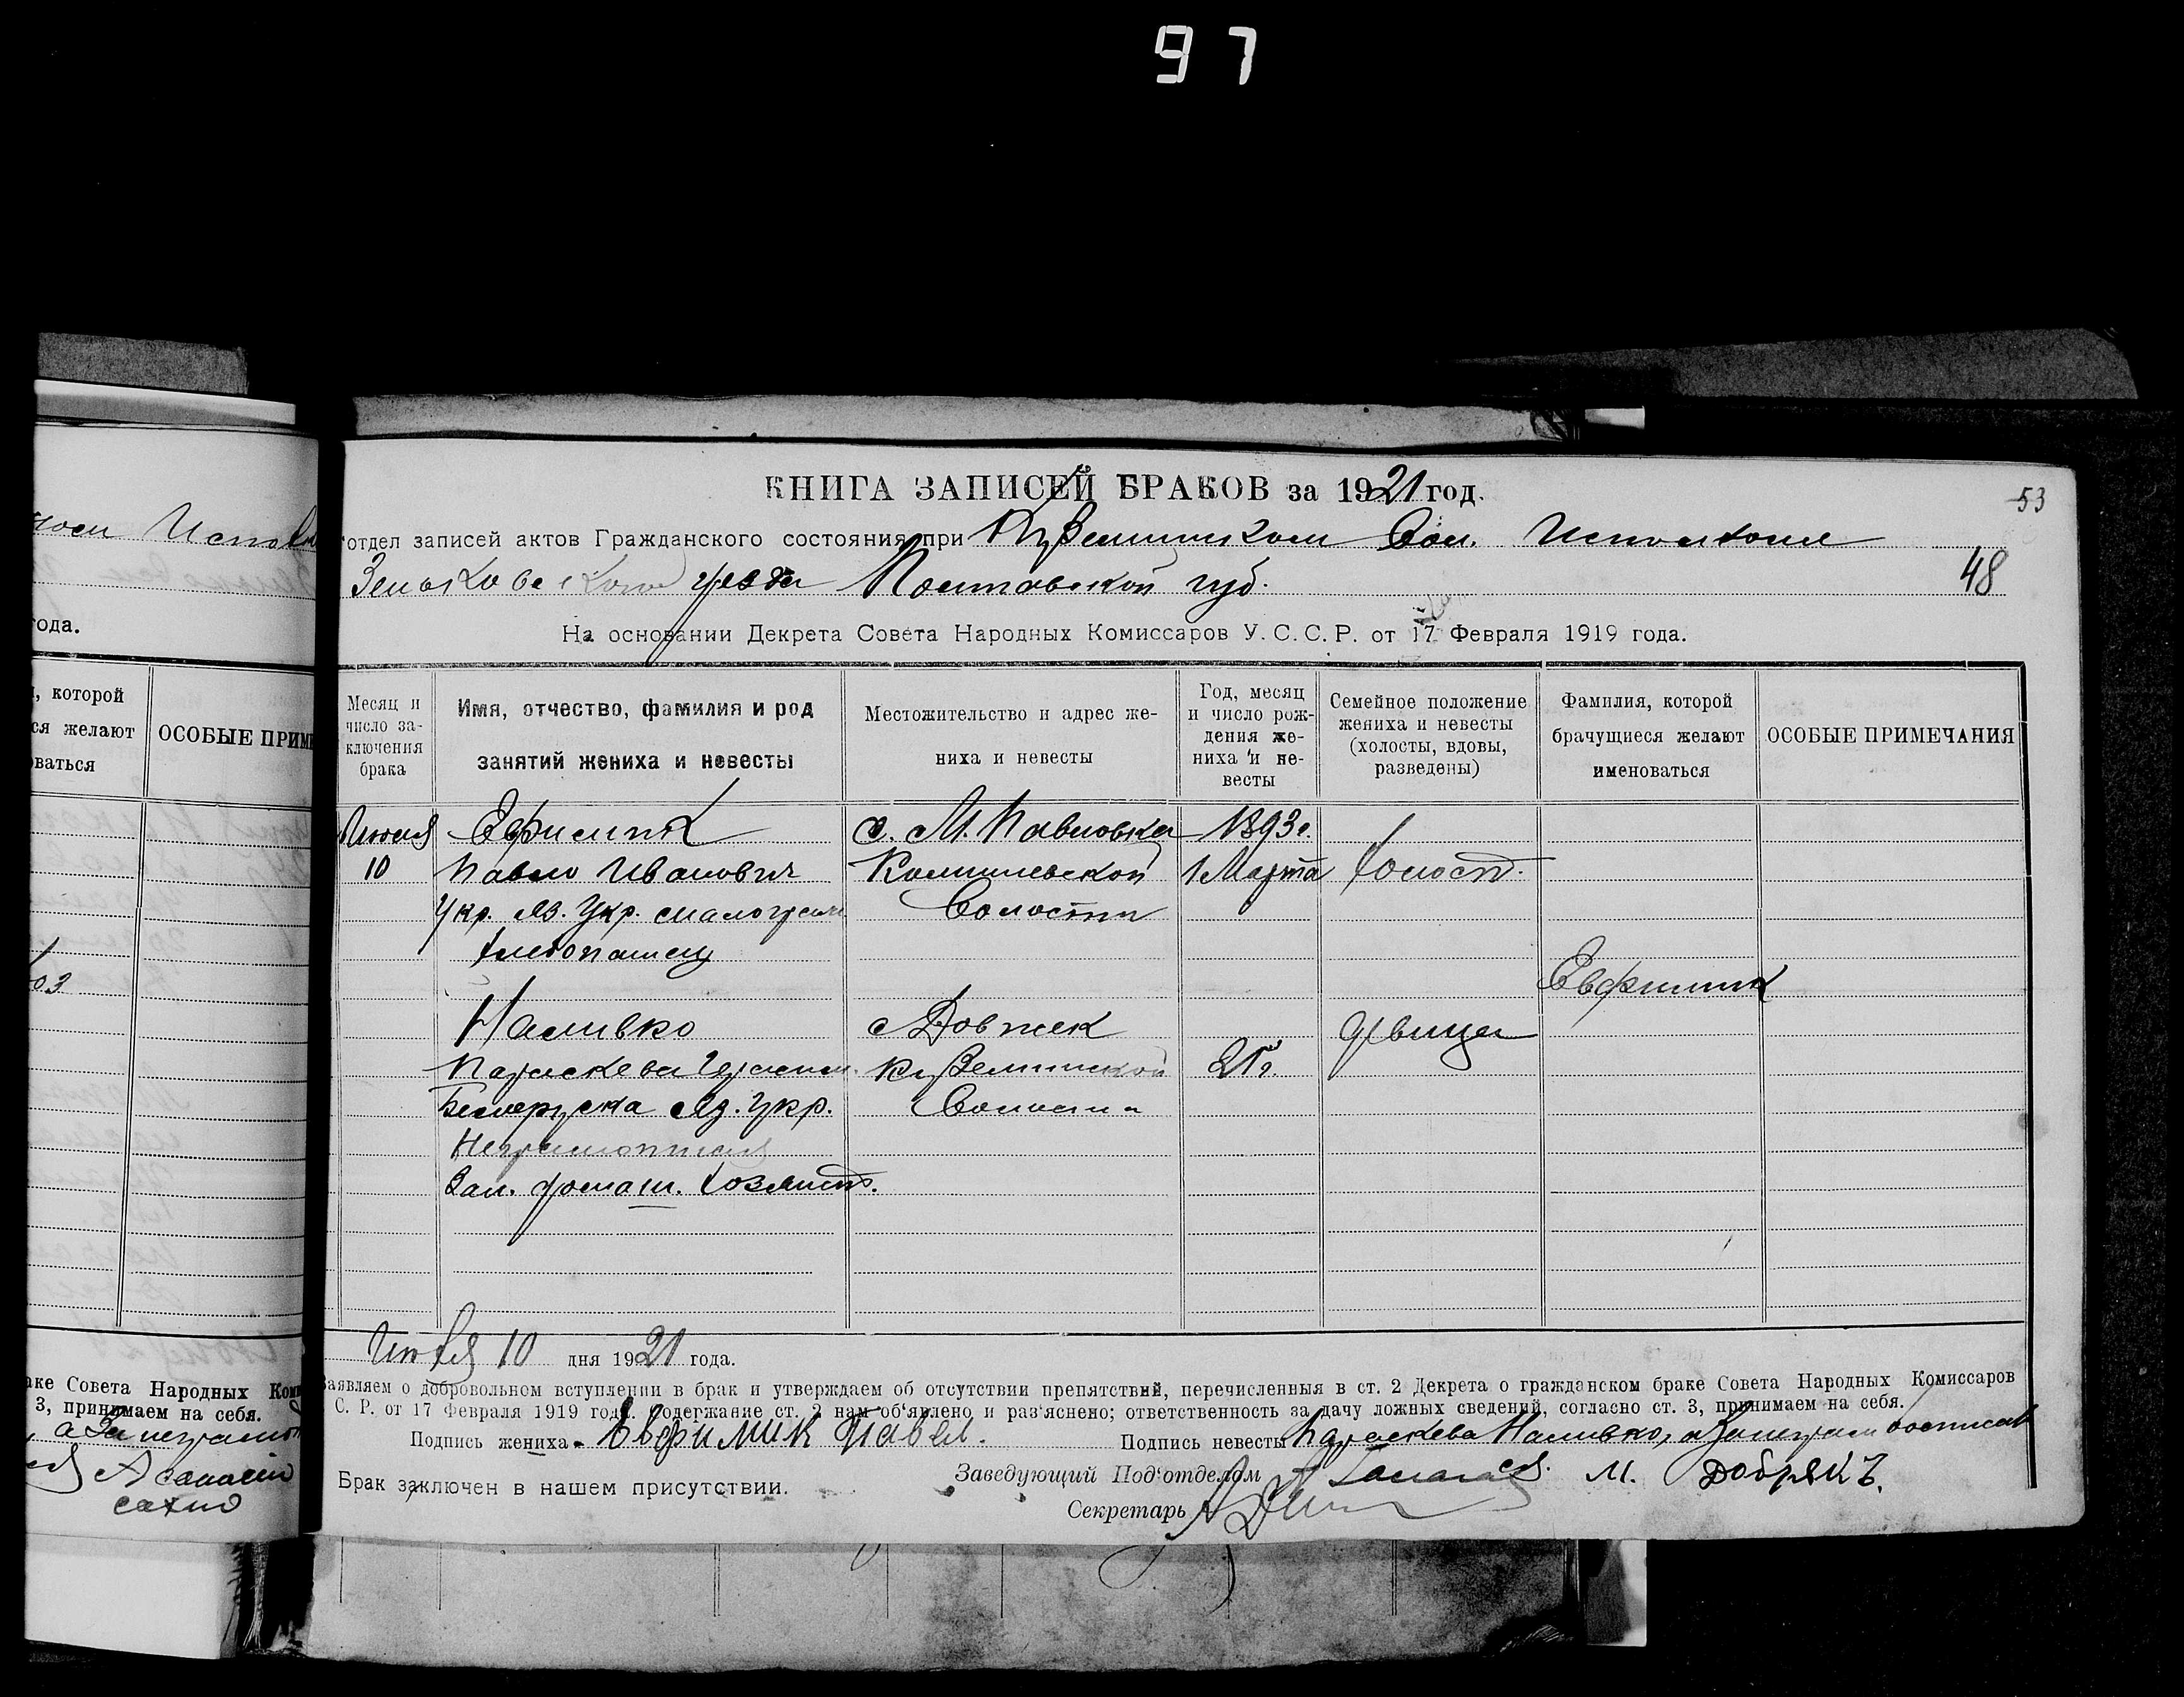 97
КНИГА ЗАПИСЕЙ БРАКОВ за 1921 год.
53
отдел записей актов Гражданского состояния при Куземинском Вол. Исполкоме
Зеньковского уезда Полтавской губ.
48
На основании Декрета Совета Народных Комиссаров У.С.С.Р. от 17 Февраля 1919 года.
Месяц и число заключения брака
Имя, отчество, фамилия и род занятий жениха и невесты
Местожительство и адрес жениха и невесты
Год, месяц и число рождения жениха и невесты
Семейное положение жениха и невесты (холосты, вдовы, разведены)
Фамилия, которой брачущиеся желают именоваться
ОСОБЫЕ ПРИМЕЧАНИЯ
Июля Ефимик с. М. Павловка 1893 г.
10 Павло Иванович Комишевской 1 Марта Холост.
Укр. яз. Укр. малограм Волости
хлебопашец
Евфимик
Наливко с Довжек девица
Параскева Герасим. Куземинской 21 г.
Белоруска яз. Укр. Волости
Неграмотная
Зан. домаш. хозяйств.
Июля 10 дня 1921 года.
Заявляем о добровольном вступлении в брак и утверждаем об отсутствии препятствий, перечисленныя в ст. 2 Декрета о гражданском браке Совета Народных Комиссаров
С. Р. от 17 Февраля 1919 года. Содержание ст. 2 нам об'явлено и раз'яснено; ответственность за дачу ложных сведений, согласно ст. 3, принимаем на себя.
Подпись жениха Евфимик Павел.
Подпись невесты Параскева Наливко, а за неграм росписав
Заведующий Под'отделом М. Добрякъ.
Брак заключен в нашем присутствии.
Секретарь
ода.
, которой
ся желают
оваться
ОСОБЫЕ ПРИМ
03
аке Совета Народных Ком
3, принимаем на себя.
а За неграмот